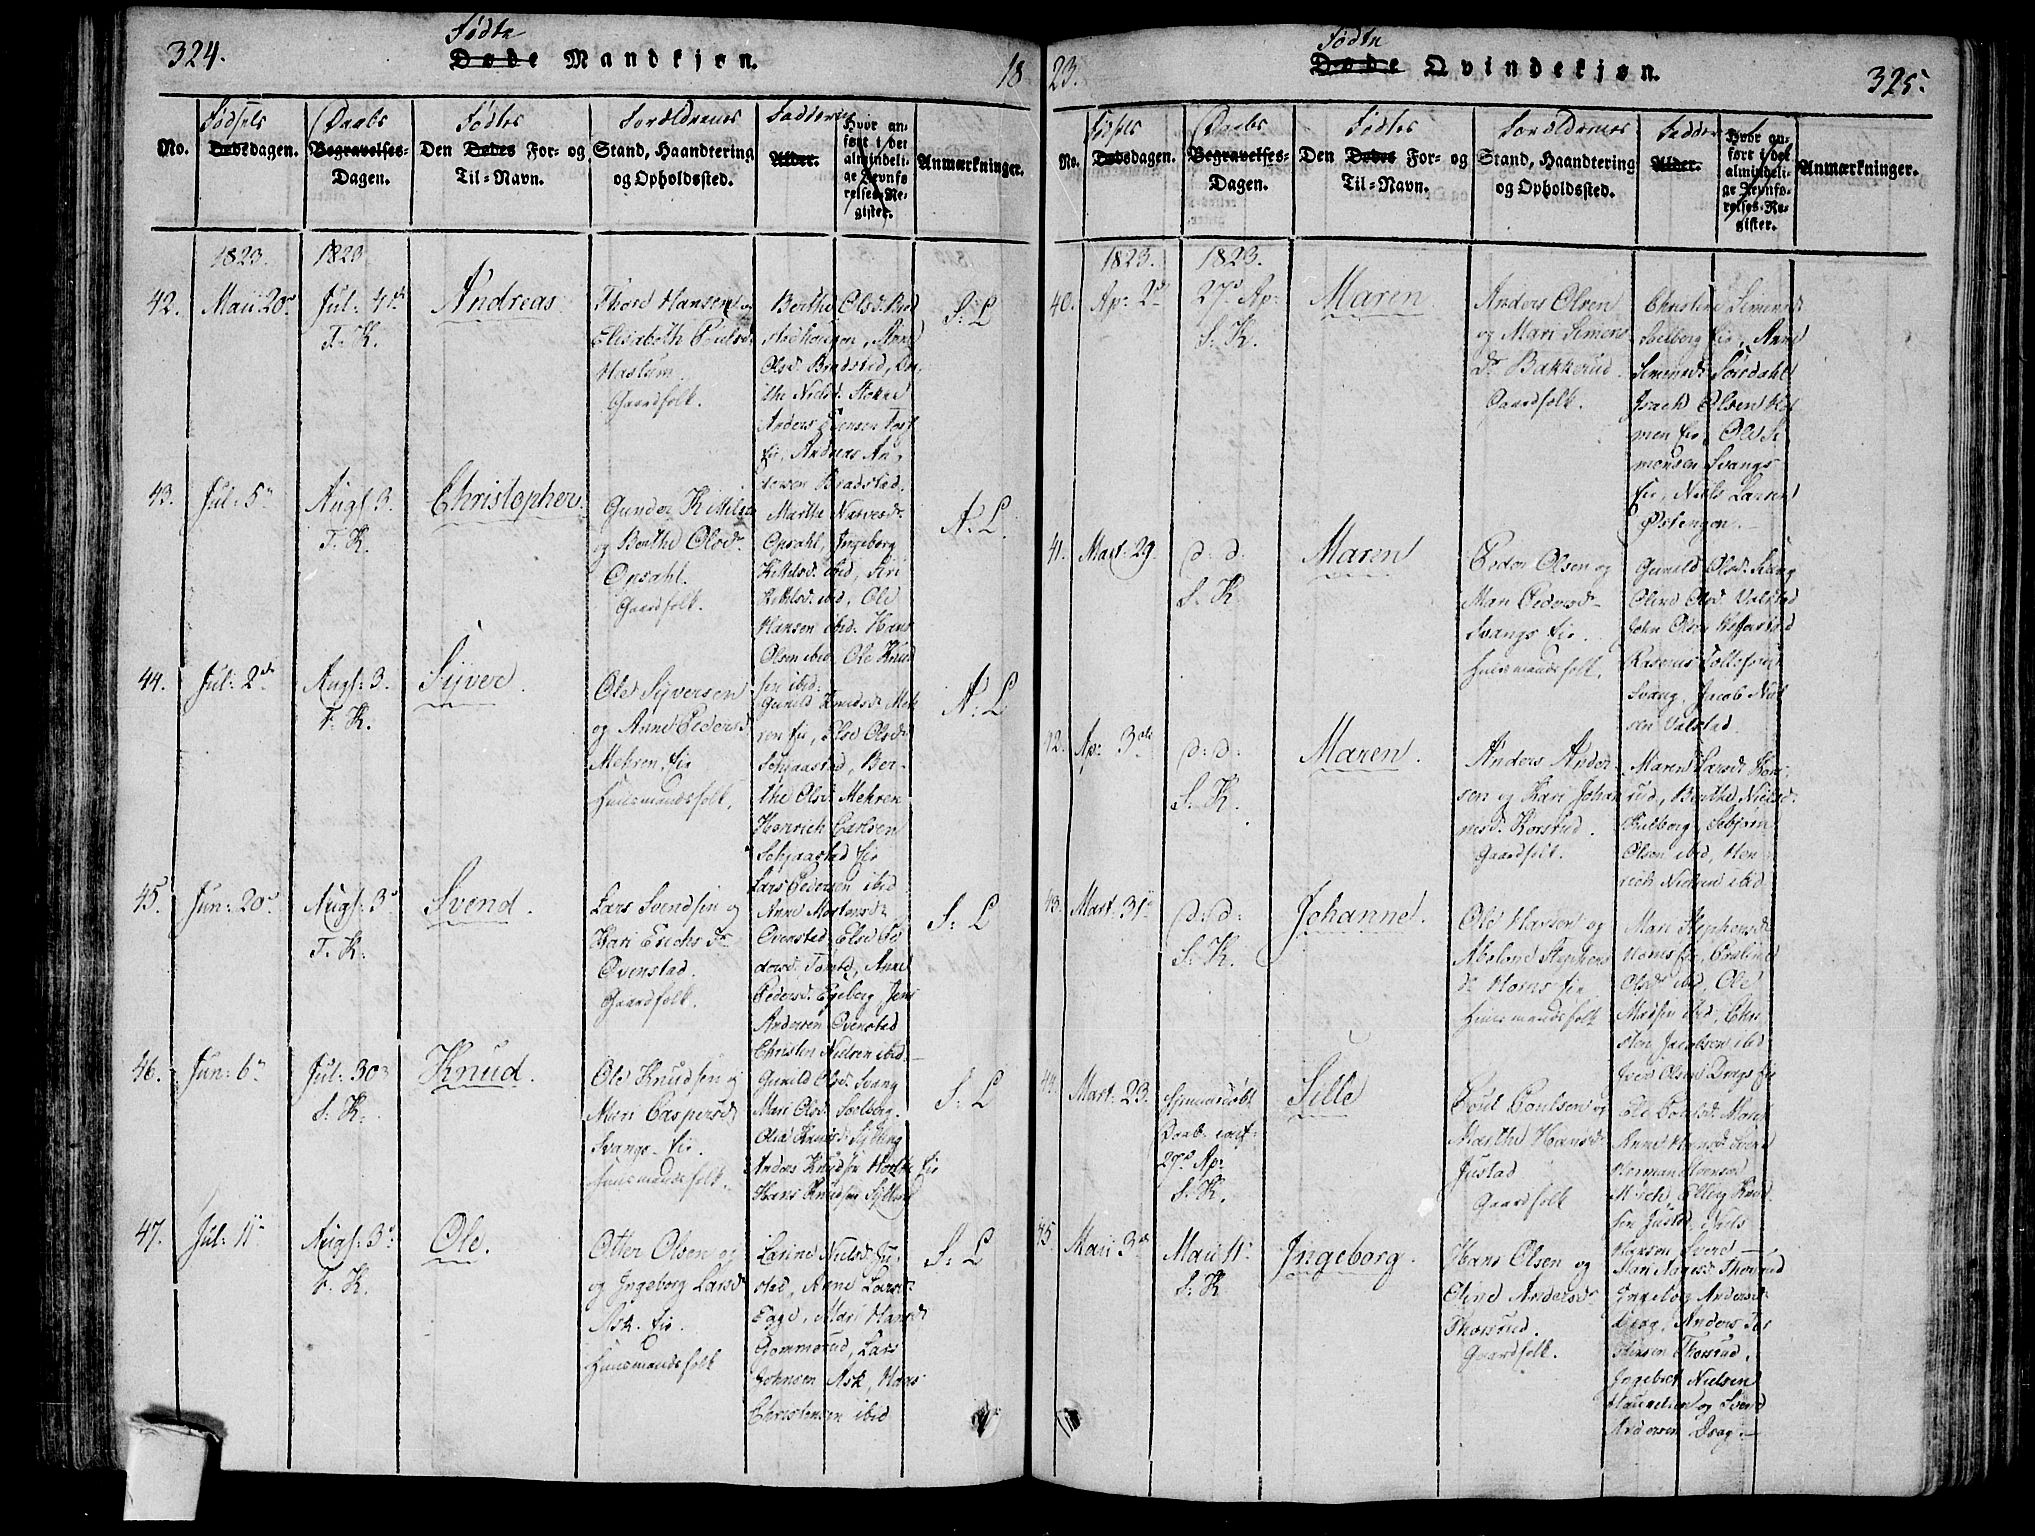 324.
Fødte
Døde Mandkjøn.
18
No.
Fødsels
Dødsdagen.
Daabs
Begravelses-
Dagen.
Fødtes
Den Dødes For- og
Til-Navn.
Forældrenes
Stand, Haandtering
og Opholdssted.
Faddere
Alder.
Hvor an-
ført i det
almindeli-
ge Jevnfø-
relses-Re-
gister.
Anmærkninger.
1823.
1823
42.
Maii 20de
Jul: 4de
F. K.
Andreas
Thore Hansen og
Elisabeth Poulsd.
Haslum.
Gaardfolk.
Berthe Olsd.
Anne
Olsd. Bradstad,
the Nielsd.
Anders
eie, Andreas An-
dersen Bradstad.
S: L
43.
Jul: 5te
Augs: 3.
F. K.
Christopher.
Gunder Kittels.
og Berthe Olsd.
Opsahl.
Gaardfolk.
Marthe Narvesd.
Opsahl, Ingeborg
Kittelsd. ibid, Siri
Kittelsd. ibid, Ole
Hansen ibid. Hans
Olsen ibid. Ole Knud
sen ibid.
A: L.
44.
Jul: 2de
Augs: 3.
F. K.
Syver.
Ole Syversen
og Anne Pedersd
Mehren eie
Huusmandsfolk.
Gunild Knudsd. Meh
ren eie, Else Olsd.
Schjaastad, Ber-
the Olsd. Mehren
Henrich Carlsen
Schjaastad eie
Lars Pedersen ibid
A: L
45.
Jun: 20de
Augs: 3de
F. K.
Svend.
Lars Svendsen og
Kari Erichsd.
Ovenstad.
Gaardfolk.
Anne Mortensd.
Ovenstad, Else Pe
dersd. Tomte, Anne
Pedersd. Egeberg, Jens
Andersen Ovenstad
Christen Nielsen ibid
S: L
46.
Jun: 6te
Jul: 30
S. K.
Knud.
Ole Knudsen og
Mari Caspersd
Svangs eie.
Huusmandsfolk.
Gunild Olsd. Svang
Mari Olsd. Soelberg.
Olia Knudsd. Sylling
Anders Knudsen Horthe eie
Hans Knudsen Sylling
S: L
47.
Jul: 11te
Augs: 3de
F. K.
Ole.
Otter Olsen og
og Ingeborg Larsd
Ask eie.
Huusmandsfolk
Larine Nielsd. Ju-
stad, Anne Larsd.
Egge, Mari Hansd
Gommerud, Lars
Johnsen Ask, Hans
Christensen ibid
S: L
23.
Fødte
Døde Qvindekjøn.
325.
No.
Fødsels
Dødsdagen.
Daabs
Begravelses-
Dagen.
Fødtes
Den Dødes For- og
Til-Navn.
Forældrenes
Stand, Haandtering
og Opholdssted.
Faddere
Alder.
Hvor an-
ført i det
almindeli-
ge Jevnfø-
relses-Re-
gister.
Anmærkninger.
1823.
1823.
40.
Ap: 2de
27de Ap:
S. K.
Maren
Anders Olsen
og Mari Simens
d. Bakkerud.
Gaardfolk.
Christine Simensd
Soelberg eie, Anne
Simensd. Sørsdahl
Jsach Olsen Hol
men eie, Ole Si
monsen Svangs
eie, Niels Larsen
Østengen.
41.
Mart: 29.
d: d:
S. K.
Maren
Peder Olsen og
Mari Pedersd.
Svangs eie.
Huusmandsfolk.
Gunild Olsd. Svang
Oline Olsd. Valstad
John Olsen
Rasmus Tollefsen
Svang, Jacob Niel
sen Valstad.
42.
Ap: 3de
d: d:
S. K.
Maren.
Anders Ander-
sen og Kari Johan
nesd. Korsrud.
Gaardfolk.
Maren Larsd. Kors-
rud, Berthe Nielsd.
Sebjørn
Olsen ibid, Hen-
rich Nielsen ibid
43.
Mart: 31te
d: d:
S. K.
Johanne.
Ole Hansen og
Abelone Stephens
d. Horns eie
Huusmandsfolk
Mari Stephensd.
Horns eie,
Olsd. ibid, Ole
Madsen ibid, Chri
sten Jacobsen ibid
Iver Olsen Drags eie
44.
Mart: 23.
Hjemmedøbt
Daab.
27de Ap:
S. K.
Sille
Poul Poulsen og
Marthe Hansd.
Justad
Gaardfolk
Anne Hansd.
Herman Iversen
Elling Knud
sen Justad, Niels
Hansen
45.
Maii 3de
Maii 11te
S. K
Ingeborg.
Hans Olsen og
Eline Andersd.
Thorsrud.
Gaardfolk.
Mari Aagesd. Thorsrud
Ingeborg Andersd.
Drag, Anders
Thorsrud,
Ingebret Nielsen
og Svend
Andersen Drag.